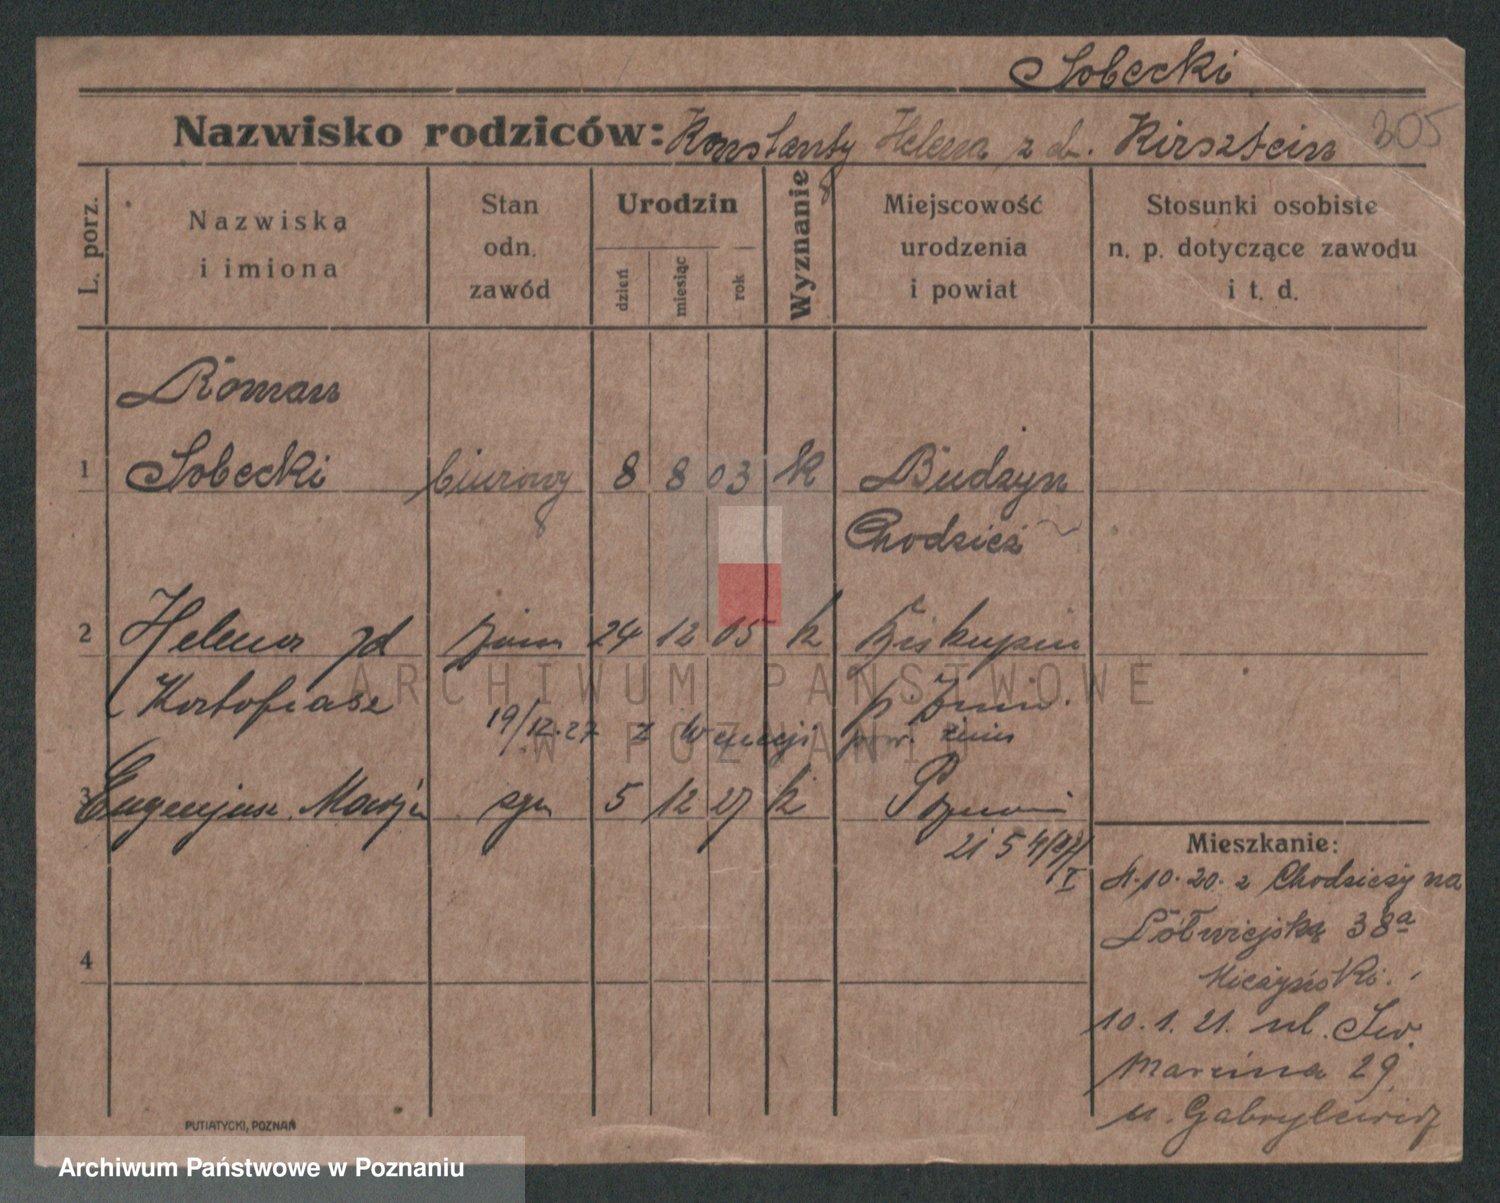 Sobecki
Nazwisko rodziców: Konstanty Helena z d. Kirsztein 305
L. porz.
Nazwiska
i imiona
Stan
odn.
zawód
Urodzin
dzień
miesiąc
rok
Wyznanie
Miejscowość
urodzenia
i powiat
Stosunki osobiste
n. p. dotyczące zawodu
i t. d.
Roman
1 Sobecki biurowy 8 8 03 k Budzyn
Chodzież
2 Helena 24 12 05 k Biskupin
19/12.27 z Wenecji pow. Żnin
3 Eugenjusz Marja 5 12 27 k Poznań
21 5 4
Mieszkanie:
4.10.20. z Chodzieży na
Półwiejską 38a
10.1.21. ul. Św.
4
Marcina 29
u. Gabrylewicz
PUTIATYCKI, POZNAŃ
ARCHIWUM PAŃSTWOWE
W POZNANIU
Archiwum Państwowe w Poznaniu